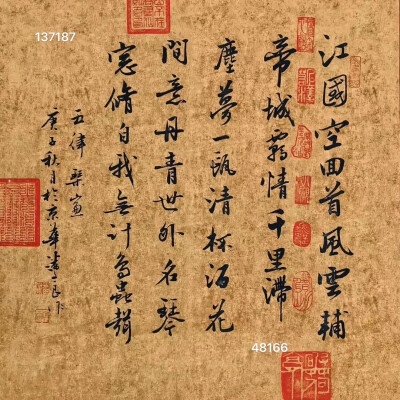 137187
江國空回首風雲輔
帝城霧情千里滯
塵夢一甌清杯酒花
間意丹青世外名琴
窓脩自我無計為蟲聲
五律 琴窗
庚子秋月於京華
48166